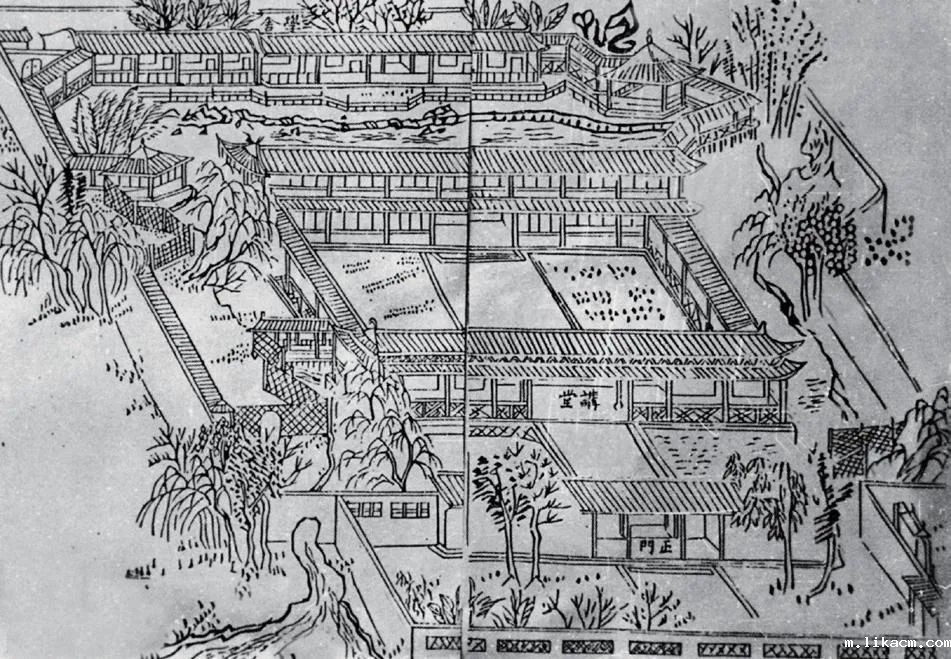 學舍
講堂
正門
m.likacm.com